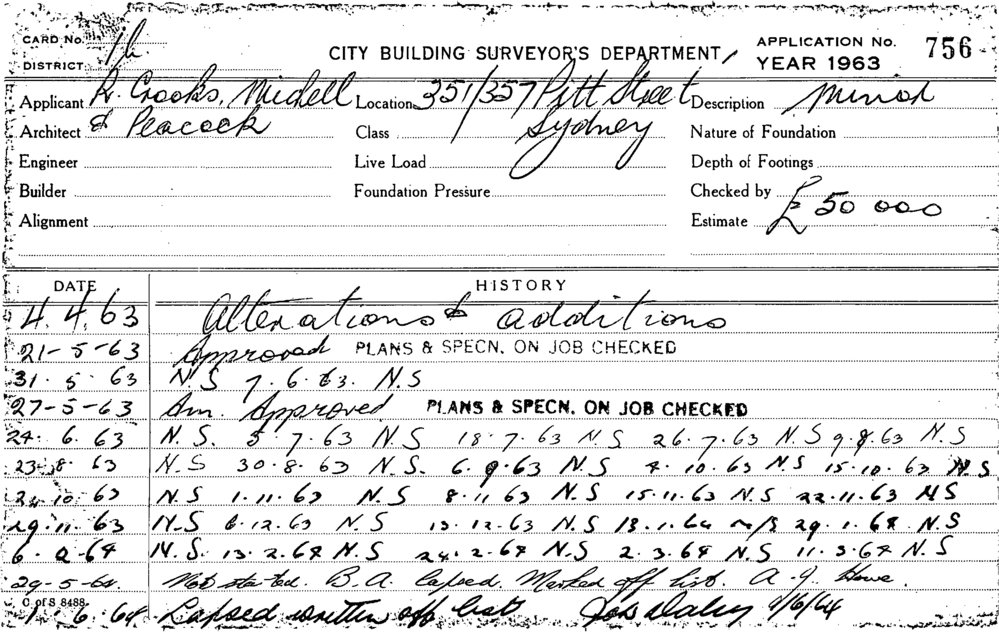 CARD No. 1h
CITY BUILDING SURVEYOR'S DEPARTMENT
APPLICATION No. 756
DISTRICT
YEAR 1963
Applicant R. Crooks, Michell Location 351/357 Pitt Street Description Minor
Architect & Peacock Class Sydney Nature of Foundation
Engineer Live Load Depth of Footings
Builder Foundation Pressure Checked by
Alignment Estimate £50 000
DATE HISTORY
4.4.63 Alterations & additions
21-5-63 Approved PLANS & SPECN. ON JOB CHECKED
31.5.63 N.S 7.6.63. N.S
27-5-63 Am. Approved PLANS & SPECN. ON JOB CHECKED
24.6.63 N.S. 5.7.63 N.S 18.7.63 N.S 26.7.63 N.S 9.8.63 N.S
23.8.63 N.S 30.8.63 N.S. 6.9.63 N.S 4.10.63 N.S 15.10.63 N.S
24.10.63 N.S 1.11.63 N.S 8.11.63 N.S 15.11.63 N.S 22.11.63 N.S
29.11.63 N.S 6.12.63 N.S 13.12.63 N.S 13.1.64 N/S 29.1.64 N.S
6.2.64 N.S. 13.2.64 N.S 24.2.64 N.S 2.3.64 N.S 11.3.64 N.S
29-5-64. Not started. B.A. lapsed. Marked off list. A.J. Howe
C. of S 8488 1.6.64 Lapsed written off list 1/6/64